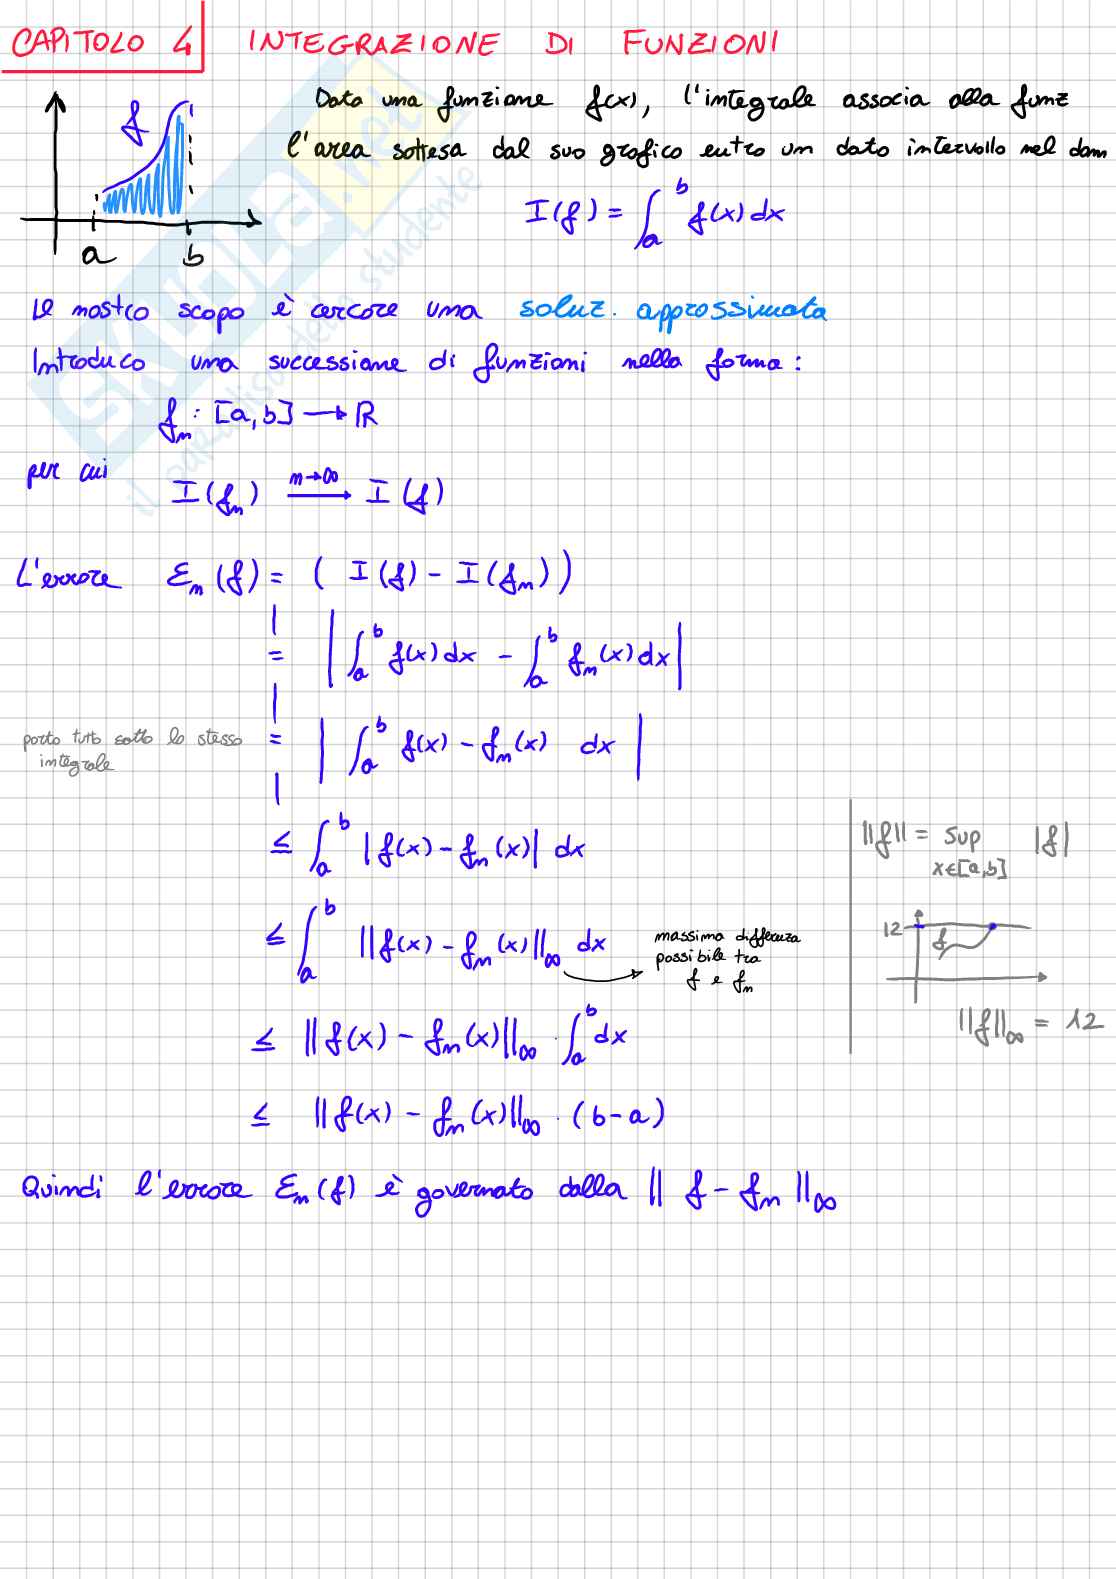 CAPITOLO 4 INTEGRAZIONE DI FUNZIONI
Data una funzione f(x), l'integrale associa alla funz
l'area sottesa dal suo grafico entro un dato intervallo nel dom
f
a b
I(f) = ∫_a^b f(x) dx
Il nostro scopo è cercare una soluz. approssimata
Introduco una successione di funzioni nella forma:
f_n : [a,b] → R
per cui
I(f_n) n→∞ → I(f)
L'errore E_n(f) = ( I(f) - I(f_n) )
= | ∫_a^b f(x) dx - ∫_a^b f_n(x) dx |
porto tutto sotto lo stesso
integrale
= | ∫_a^b f(x) - f_n(x) dx |
≤ ∫_a^b |f(x) - f_n(x)| dx
≤ ∫_a^b ||f(x) - f_n(x)||_∞ dx
massima differenza
possibile tra
f e f_n
≤ ||f(x) - f_n(x)||_∞ · ∫_a^b dx
≤ ||f(x) - f_n(x)||_∞ · (b-a)
||f|| = sup |f|
x∈[a,b]
12
f
||f||_∞ = 12
Quindi l'errore E_n(f) è governato dalla || f - f_n ||_∞
SKUOLA.net
il paradiso dello studente